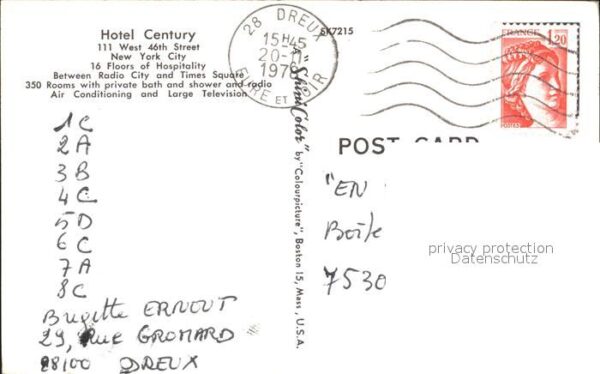 Hotel Century
111 West 46th Street
New York City
16 Floors of Hospitality
Between Radio City and Times Square
350 Rooms with private bath and shower and radio
Air Conditioning and Large Television
1C
2A
3B
4C
5D
6C
7A
8C
Brigitte ERNOUT
29, Rue GROMARD
28100 DREUX
"ShiniColor" by "Colourpicture", Boston 15, Mass., U.S.A.
28 DREUX
15H45
20-
1978
EURE ET LOIR
SK7215
FRANCE
1,20
POSTES
POST CARD
"EN
Boîte
7530
privacy protection
Datenschutz